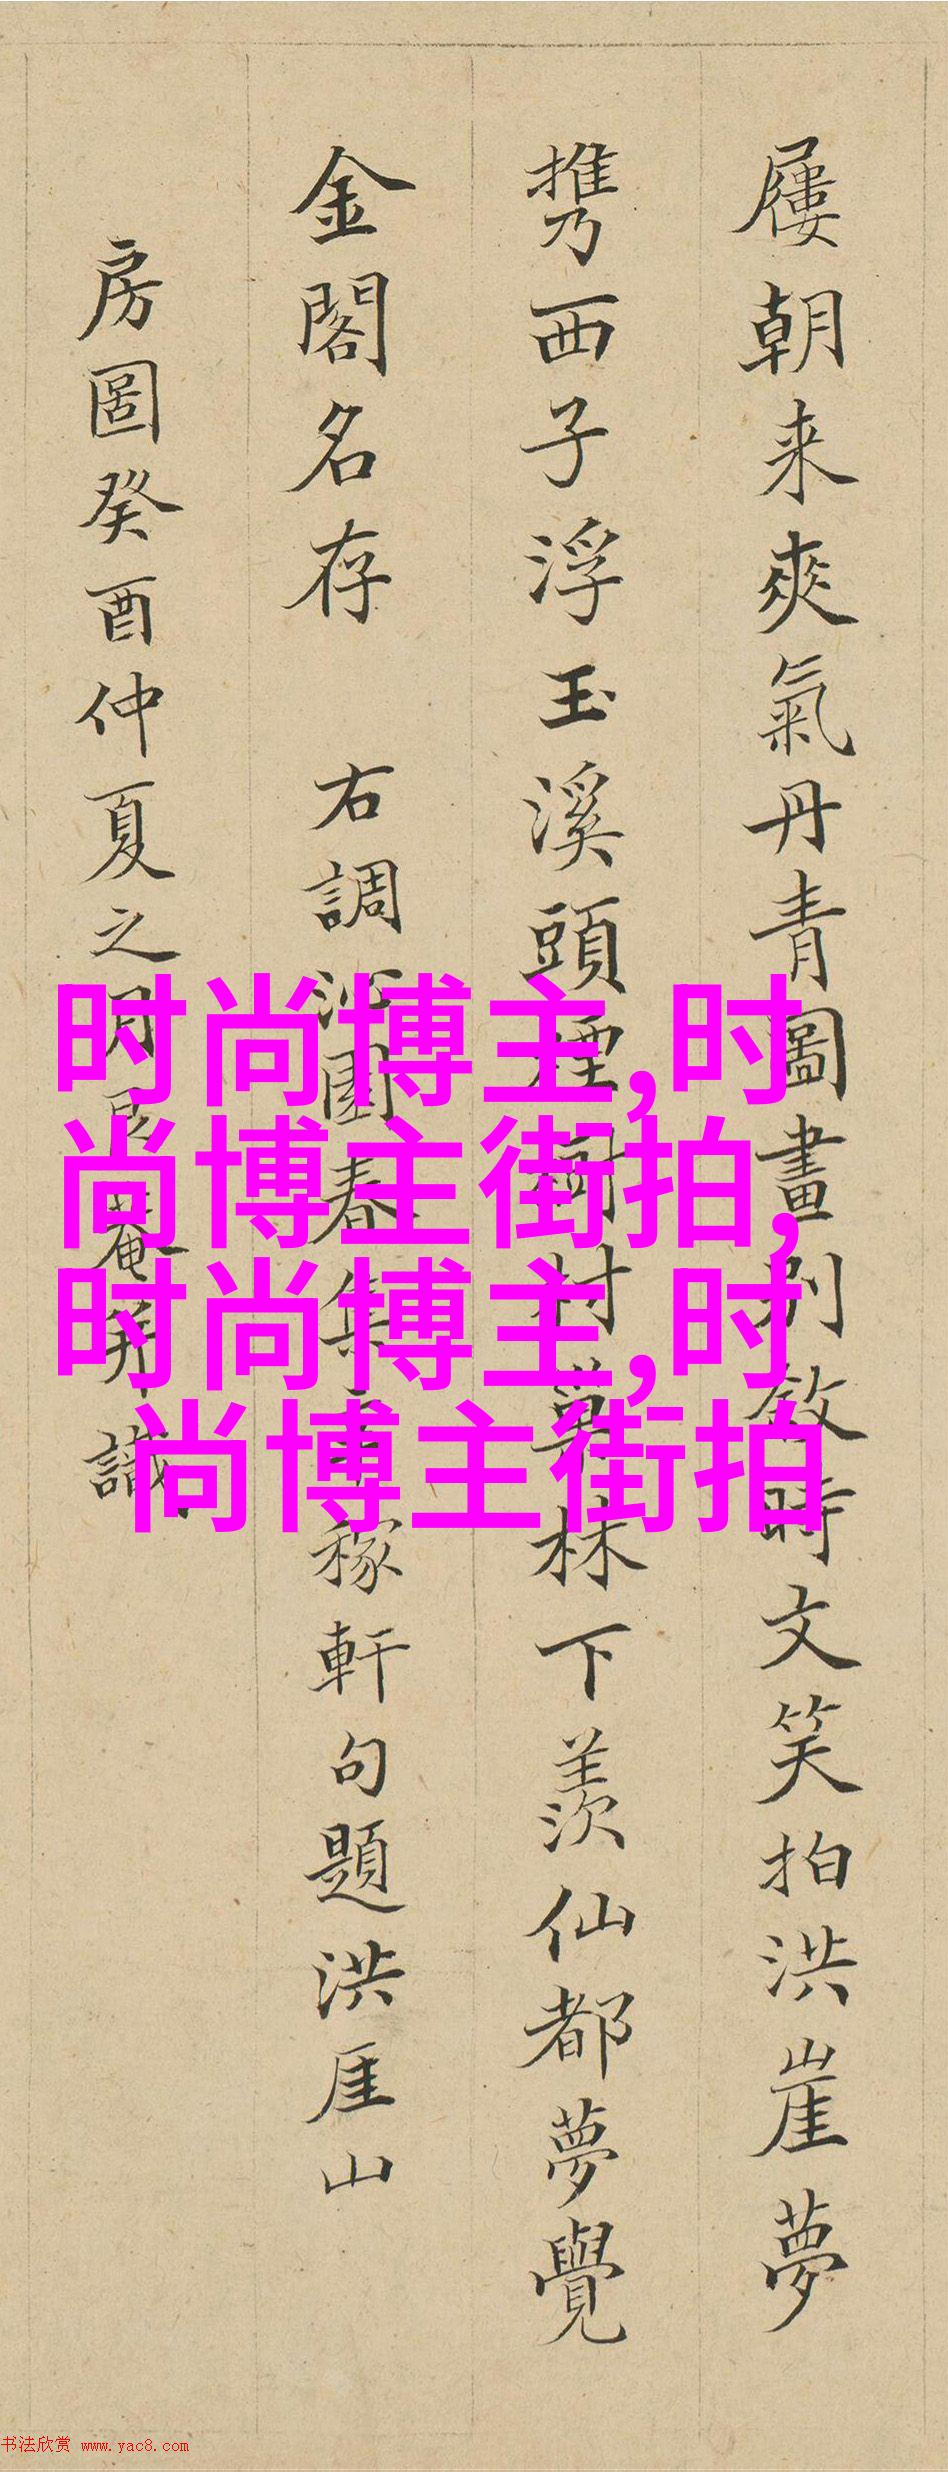 屨朝来爽氣丹青圖畫別啟時文笑拍洪崖夢
携西子浮玉溪頭煙樹村巢林下羨仙都夢覺
金閣名存 右調沁園春集 稼軒句題洪厓山
房圖癸酉仲夏之月 菴 識
时尚博主,时
尚博主街拍,
时尚博主,时
尚博主街拍
书法欣赏 www.yac8.com